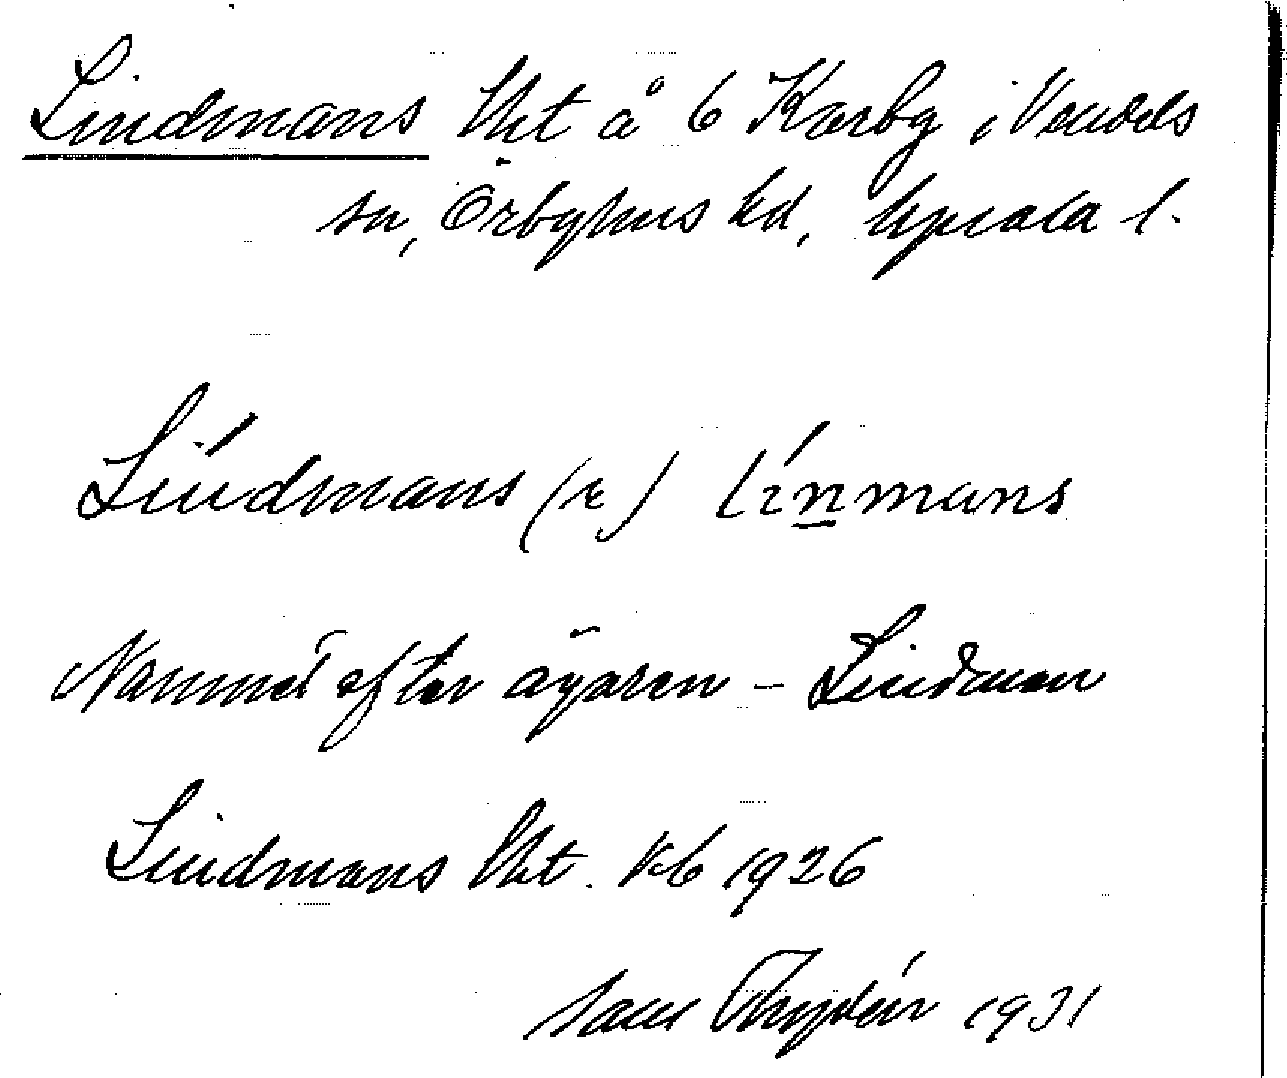 Lindmans lht å 6 Karby i Vendels
sn, Örbyhus hd, Upsala l.
Líndmans (r) línmans
Namnet efter ägaren – Lindman
Lindmans lht. kb 1926
1931